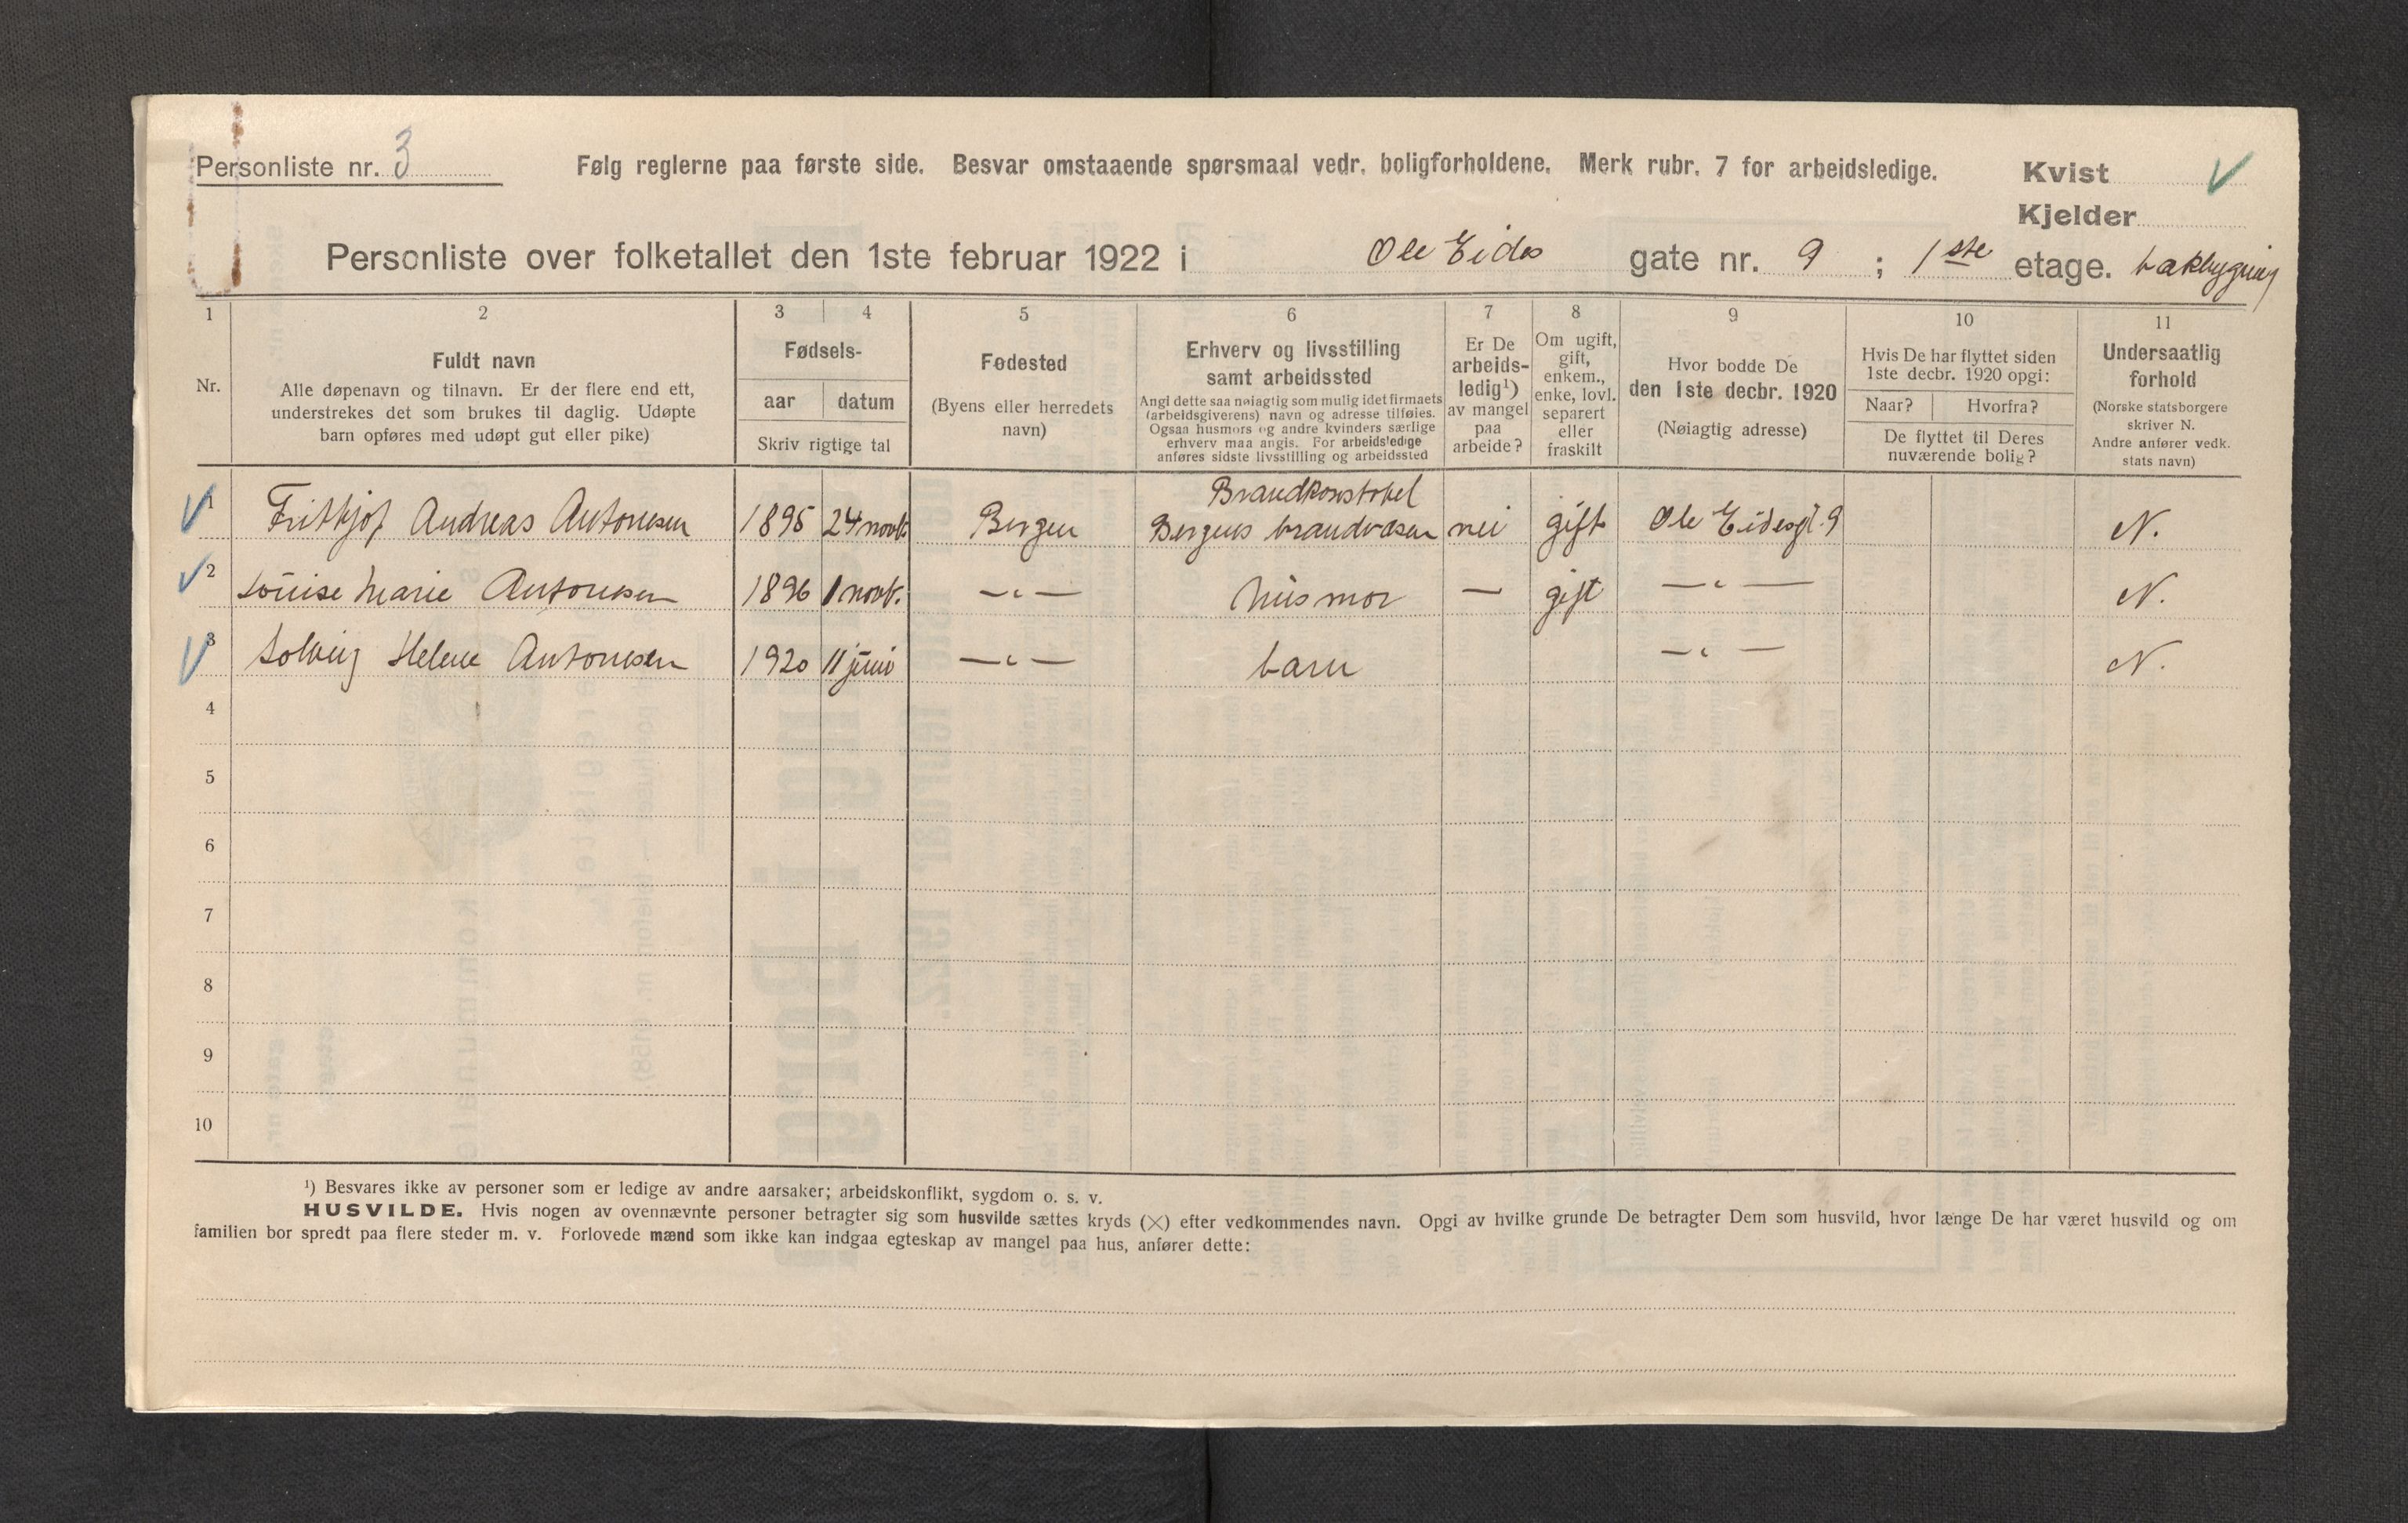 Personliste nr. 3
Følg reglerne paa første side. Besvar omstaaende spørsmaal vedr. boligforholdene. Merk rubr. 7 for arbeidsledige.
Kvist
Kjelder
Personliste over folketallet den 1ste februar 1922 i Ole Eides gate nr. 9 ; 1ste etage. bakbygning
1 2 3 4 5 6 7 8 9 10 11
Nr.
Fuldt navn
Alle døpenavn og tilnavn. Er der flere end ett,
understrekes det som brukes til daglig. Udøpte
barn opføres med udøpt gut eller pike)
Fødsels-
aar datum
Skriv rigtige tal
Fødested
(Byens eller herredets
navn)
Erhverv og livsstilling
samt arbeidssted
Angi dette saa nøiagtig som mulig idet firmaets
(arbeidsgiverens) navn og adresse tilføies.
Ogsaa husmors og andre kvinders særlige
erhverv maa angis. For arbeidsledige
anføres sidste livsstilling og arbeidssted
Er De
arbeids-
ledig¹)
av mangel
paa
arbeide?
Om ugift,
gift,
enkem.,
enke, lovl.
separert
eller
fraskilt
Hvor bodde De
den 1ste decbr. 1920
(Nøiagtig adresse)
Hvis De har flyttet siden
1ste decbr. 1920 opgi:
Naar? Hvorfra?
De flyttet til Deres
nuværende bolig?
Undersaatlig
forhold
(Norske statsborgere
skriver N.
Andre anfører vedk.
stats navn)
Brandkonstabel
1 Frithjof Andreas Antonesen 1895 24 novb. Bergen Bergens brandvæsen nei gift Ole Eidesgt. 9 N.
2 Louise Marie Antonesen 1896 1 novb. —„— husmor — gift —„— N.
3 Solveig Helene Antonesen 1920 11 juni —„— barn —„— N.
4
5
6
7
8
9
10
¹) Besvares ikke av personer som er ledige av andre aarsaker; arbeidskonflikt, sygdom o. s. v.
HUSVILDE. Hvis nogen av ovennævnte personer betragter sig som husvilde sættes kryds (✕) efter vedkommendes navn. Opgi av hvilke grunde De betragter Dem som husvild, hvor længe De har været husvild og om
familien bor spredt paa flere steder m. v. Forlovede mænd som ikke kan indgaa egteskap av mangel paa hus, anfører dette: